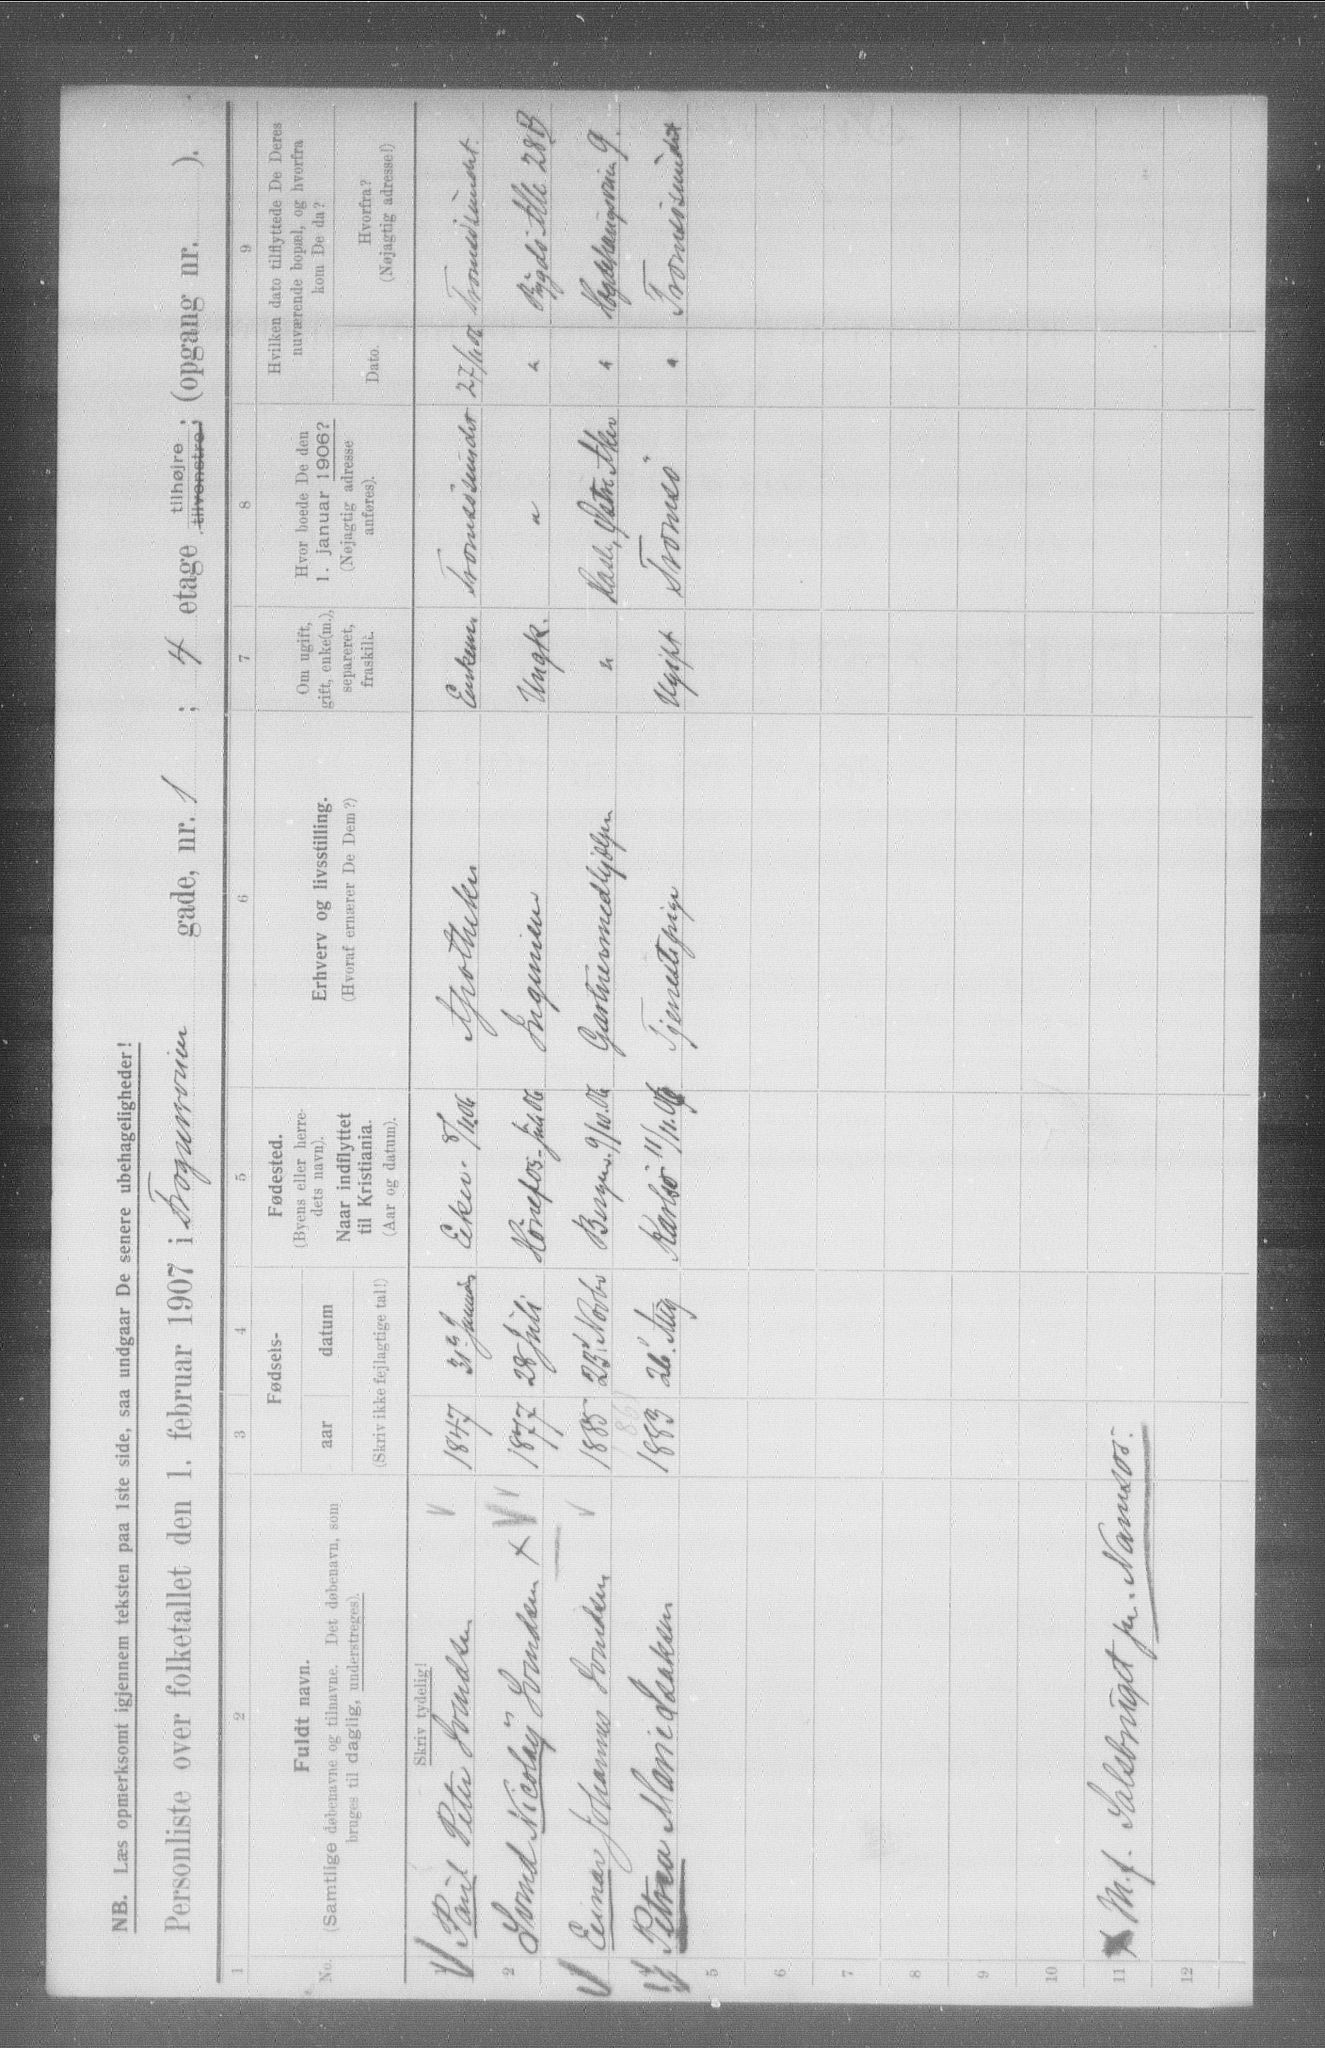 NB. Læs opmerksomt igjennem teksten paa 1ste side, saa undgaar De senere ubehageligheder!
Personliste over folketallet den 1. februar 1907 i Frognerveien gade, nr. 1 ; 4 etage tilhøjre tilvenstre ; (opgang nr. ).
1 2 3 4 5 6 7 8 9
No.
Fuldt navn.
(Samtlige døbenavne og tilnavne. Det døbenavn, som
bruges til daglig, understreges).
Fødsels-
aar datum
(Skriv ikke fejlagtige tal!)
Fødested.
(Byens eller herre-
dets navn).
Naar indflyttet
til Kristiania.
(Aar og datum).
Erhverv og livsstilling.
(Hvoraf ernærer De Dem?)
Om ugift,
gift, enke(m.),
separeret,
fraskilt.
Hvor boede De den
1. januar 1906?
(Nøjagtig adresse
anføres).
Hvilken dato tilflyttede De Deres
nuværende bopæl, og hvorfra
kom De da?
Dato.
Hvorfra?
(Nøjagtig adresse!)
Skriv tydelig!
1 Paul Peter Svendsen 1847 31 Januar Eker 8/11.06 Apotheker Enkem. Tromsösundet 27/11.06 Tromsösundet.
2 Svend Nicolaÿ Svendsen 1877 28 Juli Hönefos Juli.06 Ingeniør Ungk. " " Bygdö Alle 28 B
3 Einar Johannes Svendsen 1885 23' Novbr Bergen. 9/10.06 Gartnermedhjælper " Østre Aker " Hegdehaugsveien 9.
4 Petrea Marie Isaksen 1883 26' Aug Karlsö 11/11.06 Tjenestepige Ugift Tromsö " Tromsösundet
5
6
7
8
9
10
11 M.f. Salsbruget pr. Namsos.
12